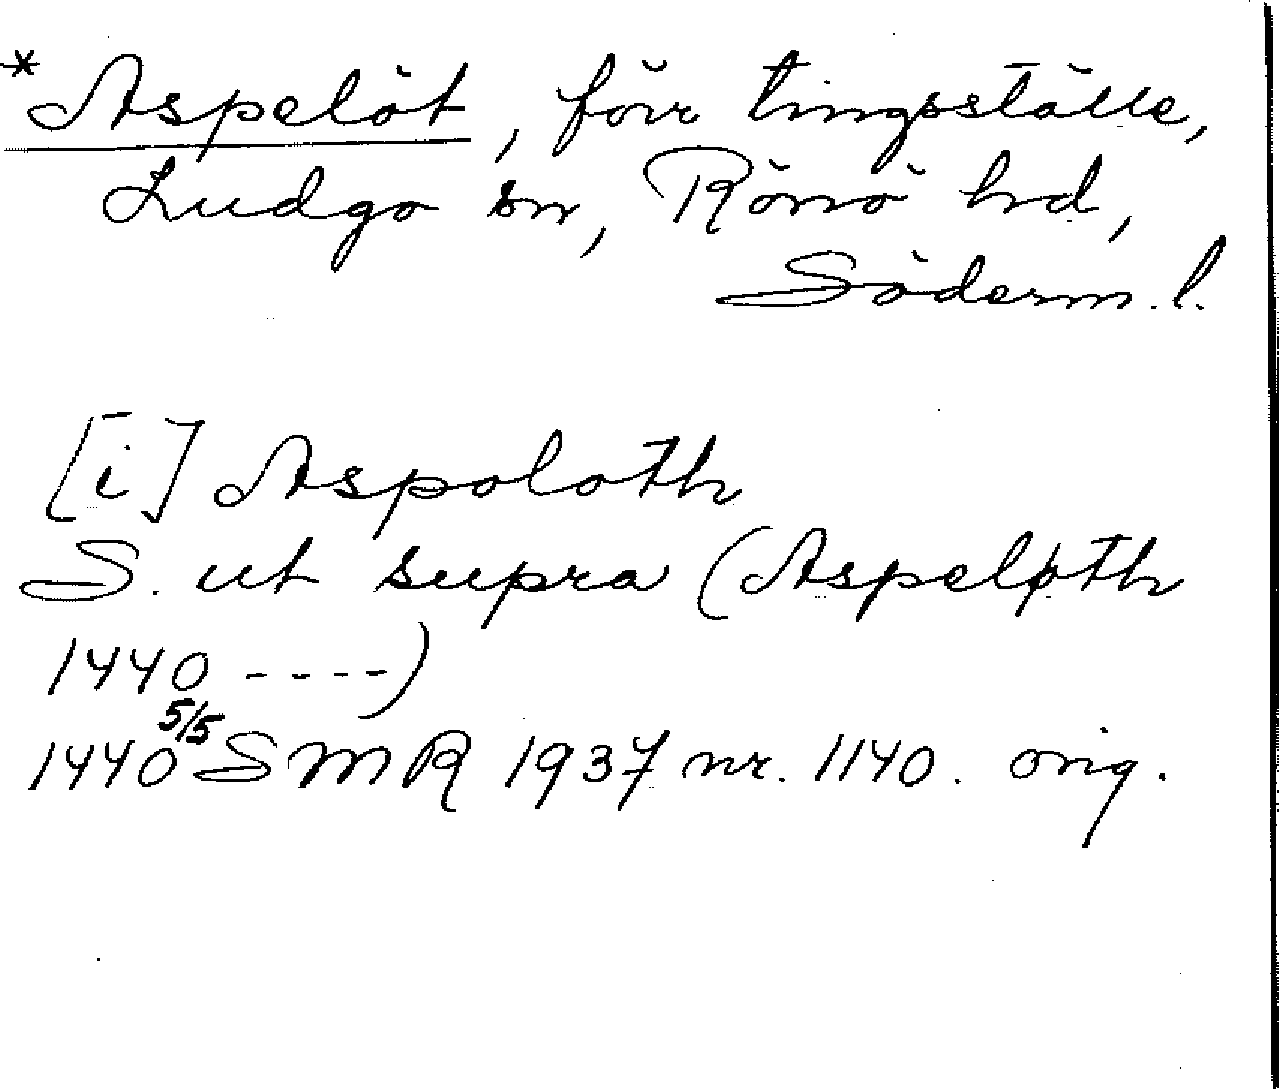 *Aspelöt, förr tingsställe,
Ludgo sn, Rönö hd,
Söderm. l.
[i] Aspoloth
S. ut supra (Aspeløth
1440 ----)
1440 5/5 SMR 1937 nr. 1140. orig.